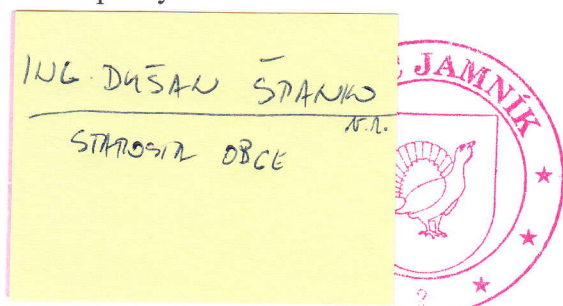 ING. DUŠAN ŠTANKO
v.r.
STAROSTA OBCE
JAMNÍK
2